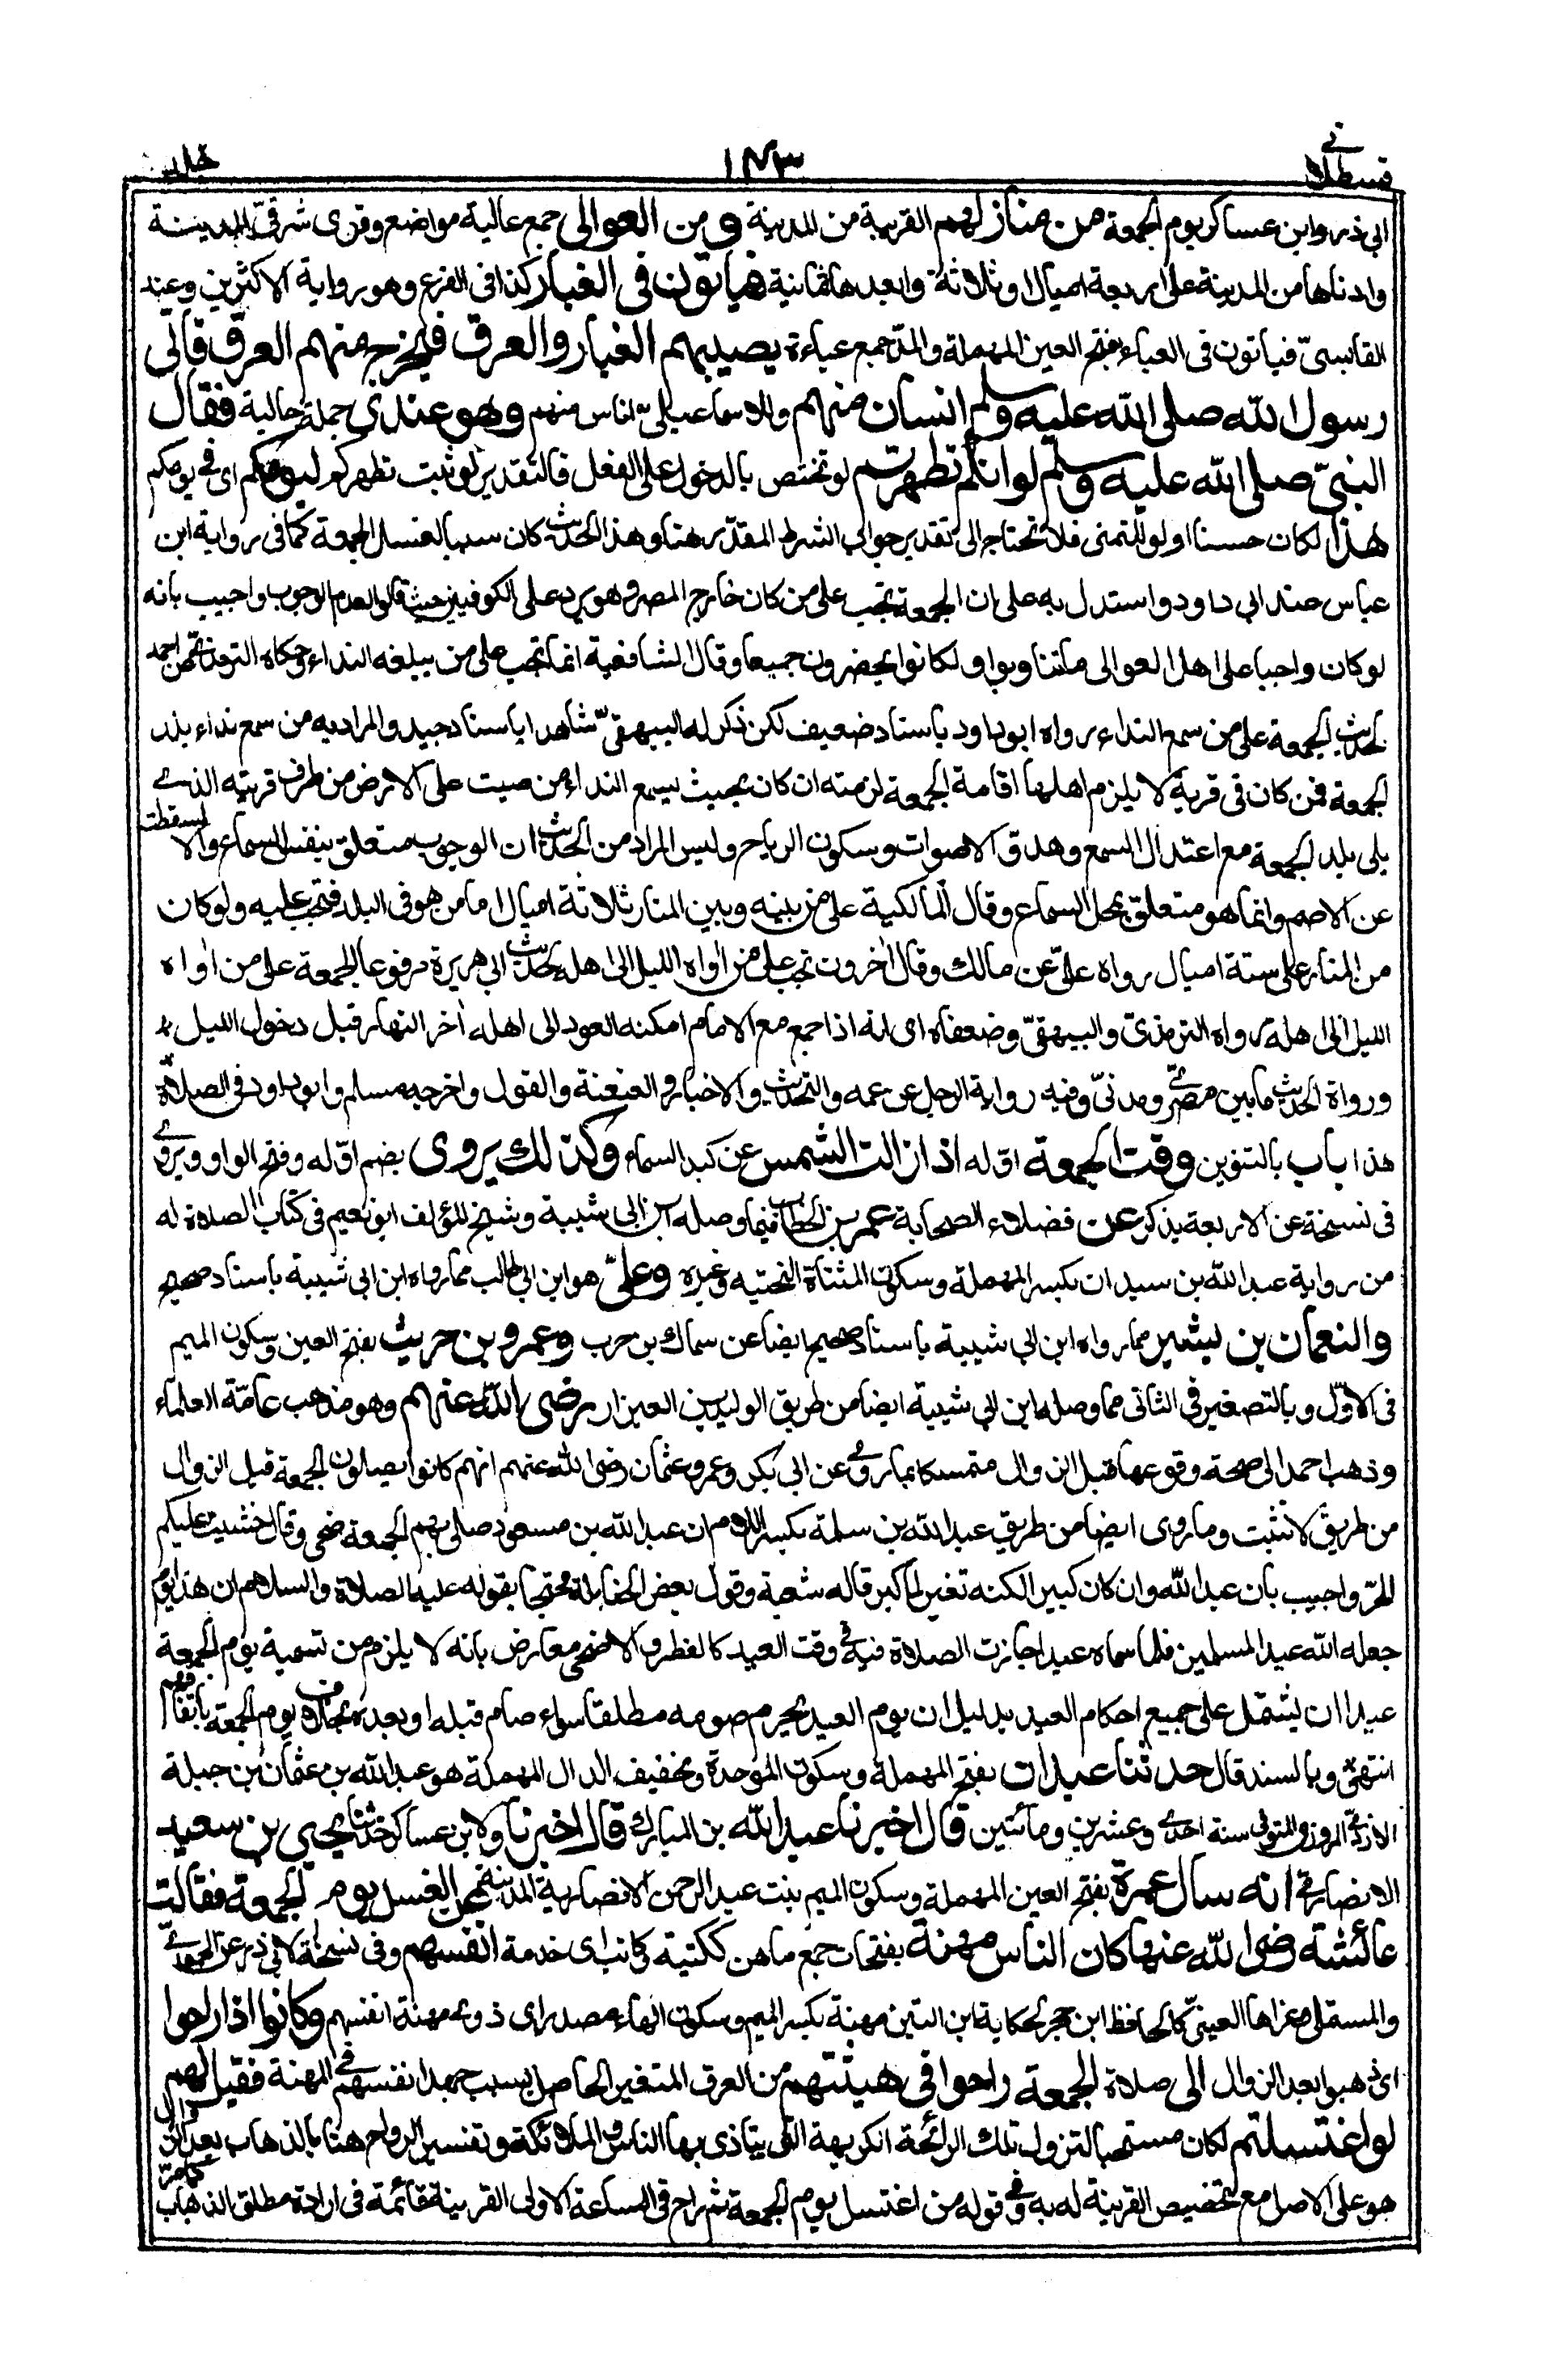 قسطلانے
١٤٣
ابي ذر وابن عساكر يوم الجمعة من منازلهم القريبة من المدينة ومن العوالى جمع عالية مواضع وقرى شرقىّ المدينة
وادناها من المدينة على اربعة اميال او ثلاثة وابعدها ثمانية فياتون فى الغبار كذا فى الفرع وهو رواية الاكثرين وعند
القابسىّ فياتون فى العباء بفتح العين المهملة والمدّ جمع عباءة يصيبهم الغبار والعرق فيخرج منهم العرق فاتى
رسول الله صلى الله عليه وسلم انسان منهم وللاسماعيلىّ اناس منهم وهو عندي جملة حالية فقال
النبىّ صلى الله عليه وسلم لو انكم تطهرتم لو تختص بالدخول على الفعل فالتقدير لو ثبت تطهركم ليومكم اى فى يومكم
هذا لكان حسنا او لو للتمنى فلا تحتاج الى تقدير جواب الشرط المقدّر هنا وهذا الحديث كان سببا لغسل الجمعة كما فى رواية ابن
عباس عند ابي داود واستدل به على ان الجمعة تجب على من كان خارج المصر وهو يرد على الكوفيين حيث قالوا بعدم الوجوب واجيب بانه
لو كان واجبا على اهل العوالى ما تناوبوا ولكانوا يحضرون جميعا وقال الشافعية انما تجب على من يبلغه النداء وحكاه الترمذىّ عن احمد
لحديث الجمعة على من سمع النداء رواه ابو داود باسناد ضعيف لكن ذكر له البيهقىّ شاهدا باسناد جيد والمراد به من سمع نداء بلد
الجمعة فمن كان فى قرية لا يلزم اهلها اقامة الجمعة لزمته ان كان بحيث يسمع النداء من صيت على الارض من طرف قريته الذے
يلى بلد الجمعة مع اعتدال السمع وهدوّ الاصوات وسكون الرياح وليس المراد من الحديث ان الوجوب متعلق بنفس السماع والا لسقطت
عن الاصم وانما هو متعلق بمحل السماع وقال المالكية على من بينه وبين المنار ثلاثة اميال اما من هو فى البلد فتجب عليه ولو كان
من المنار على ستة اميال رواه علىّ عن مالك وقال اٰخرون تجب على من اٰواه الليل الى اهله لحديث ابي هريرة مرفوعا الجمعة على من اٰواه
الليل الى اهله رواه الترمذىّ والبيهقىّ وضعفاه اى انه اذا جمع مع الامام امكنه العود الى اهله اٰخر النهار قبل دخول الليل
ورواة الحديث ما بين مصرىّ ومدنىّ وفيه رواية الرجل عن عمه والتحديث والاخبار والعنعنة والقول واخرجه مسلم وابو داود فى الصلاة
هذا باب بالتنوين وقت الجمعة اوّله اذا زالت الشمس عن كبد السماء وكذلك يروى بضم اوّله وفتح الواو ويروے
فى نسخة عن الاربعة يذكر عن فضلاء الصحابة عمر بن الخطاب فيما وصله ابن ابى شيبة وشيخ المؤلف ابو نعيم فى كتاب الصلاة له
من رواية عبد الله بن سيدان بكسر المهملة وسكون المثناة التحتيه وغيره وعلىّ هو ابن ابى طالب مما رواه ابن ابي شيبة باسناد صحيح
والنعمان بن بشير مما رواه ابن ابي شيبة باسناد صحيح ايضا عن سماك بن حرب وعمرو بن حريث بفتح العين وسكون الميم
فى الاوّل وبالتصغير فى الثانى مما وصله ابن ابي شيبة ايضا من طريق الوليد بن العيزار رضى الله عنهم وهو مذهب عامّة العلماء
وذهب احمد الى صحة وقوعها قبل الزوال متمسكا بما روے عن ابى بكر وعمر وعثمان رضى الله عنهم انهم كانوا يصلون الجمعة قبل الزوال
من طريق لا تثبت وما روى ايضا من طريق عبد الله بن سلمة بكسر اللام ان عبد الله بن مسعود صلى بهم الجمعة ضحى وقال خشيت عليكم
الحرّ واجيب بان عبد الله وان كان كبيرا لكنه تغير لما كبر قاله شعبة وقول بعض الحنابلة محتجا بقوله عليه الصلاة والسلام ان هذا يوم
جعله الله عيدا للمسلمين فلما سماه عيدا جازت الصلاة فيه فى وقت العيد كالفطر والاضحى معارض بانه لا يلزم من تسمية يوم الجمعة
عيدا ان يشتمل على جميع احكام العيد بدليل ان يوم العيد يحرم صومه مطلقا سواء صام قبله او بعده بخلاف يوم الجمعة باتفاقهم
انتهى وبالسند قال حدثنا عبدان بفتح المهملة وسكون الموحدة وتخفيف الدال المهملة هو عبد الله بن عثمان بن جبلة
الازدىّ المروزى المتوفى سنة احدے وعشرين ومائتين قال اخبرنا عبد الله بن المبارك قال اخبرنا ولابن عساكر حدثنا يحيى بن سعيد
الانصارىّ انه سال عمرة بفتح العين المهملة وسكون الميم بنت عبد الرحمن الانصارية المدنية عن الغسل يوم الجمعة فقالت
عائشة رضى الله عنها كان الناس مهنة بفتحات جمع ماهن ككتبة وكاتب اى خدمة انفسهم وفى نسخة لابى ذر عن الحموىّ
والمستملى وعزاها العينىّ كالحافظ ابن حجر لحكاية ابن التين مهنة بكسر الميم وسكون الهاء مصدر اى ذوى مهنة انفسهم وكانوا اذا راحوا
اى ذهبوا بعد الزوال الى صلاة الجمعة راحوا فى هيئتهم من العرق المتغير الحاصل بسبب جهد انفسهم فى المهنة فقيل لهم
لو اغتسلتم لكان مستحبا لتزول تلك الرائحة الكريهة التى يتاذى بها الناس والملائكة وتفسير الرواح هنا بالذهاب بعد الزوال
هو على الاصل مع تخصيص القرينة له به وفى قوله من اغتسل يوم الجمعة ثم راح فى الساعة الاولى القرينة قائمة فى ارادة مطلق الذهاب كما مرّ